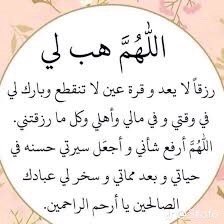 اللَّهُمَّ هب لي
رزقاً لا يعد و قرة عين لا تنقطع وبارك لي
في وقتي و في مالي وأهلي وكل ما رزقتني.
اللَّهُمَّ أرفع شأني و أجعَل سيرتي حسنه في
حياتي و بعد مماتي و سخر لي عبادك
الصالحين يا أرحم الراحمين.